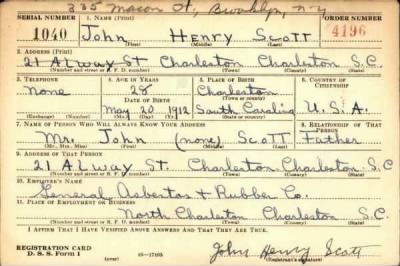 335 Macon St, Brooklyn, N.Y
SERIAL NUMBER 1. NAME (Print) ORDER NUMBER
1040 John Henry Scott 4196
(First) (Middle) (Last)
2. ADDRESS (Print)
21 Alway St Charleston Charleston S.C.
(Number and street or R. F. D. number) (Town) (County) (State)
3. TELEPHONE 4. AGE IN YEARS 5. PLACE OF BIRTH 6. COUNTRY OF CITIZENSHIP
None 28 Charleston
DATE OF BIRTH (Town or county)
May 20 1912 South Carolina U.S.A.
(Exchange) (Number) (Mo.) (Day) (Yr.) (State or country)
7. NAME OF PERSON WHO WILL ALWAYS KNOW YOUR ADDRESS 8. RELATIONSHIP OF THAT PERSON
Mr. John (none) Scott Father
(Mr., Mrs., Miss) (First) (Middle) (Last)
9. ADDRESS OF THAT PERSON
21 Alway St. Charleston Charleston S.C
(Number and street or R. F. D. number) (Town) (County) (State)
10. EMPLOYER'S NAME
General Asbestas & Rubber Co.
11. PLACE OF EMPLOYMENT OR BUSINESS
North Charleston Charleston S.C.
(Number and street or R. F. D. number) (Town) (County) (State)
I AFFIRM THAT I HAVE VERIFIED ABOVE ANSWERS AND THAT THEY ARE TRUE.
REGISTRATION CARD
D. S. S. Form 1 16—17105 John Henry Scott
(Registrant's signature)